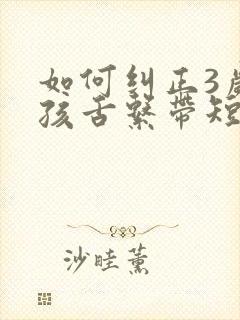 如何纠正3岁
孩舌繫带短
沙畦薰